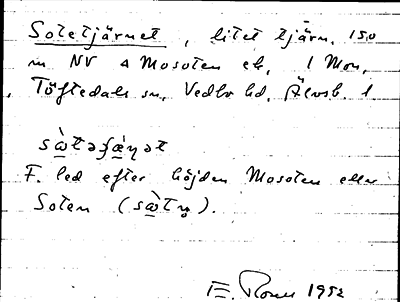 Sotetjärnet, litet tjärn, 150
m NV ▵ Mosoten ek, 1 Mon,
Töftedals sn, Vedbo hd, Älvsb. l
sὰ̲təfæ̲̀ṇət
F. led efter höjden Mosoten eller
Soten (sὰ̲tṇ).
1952